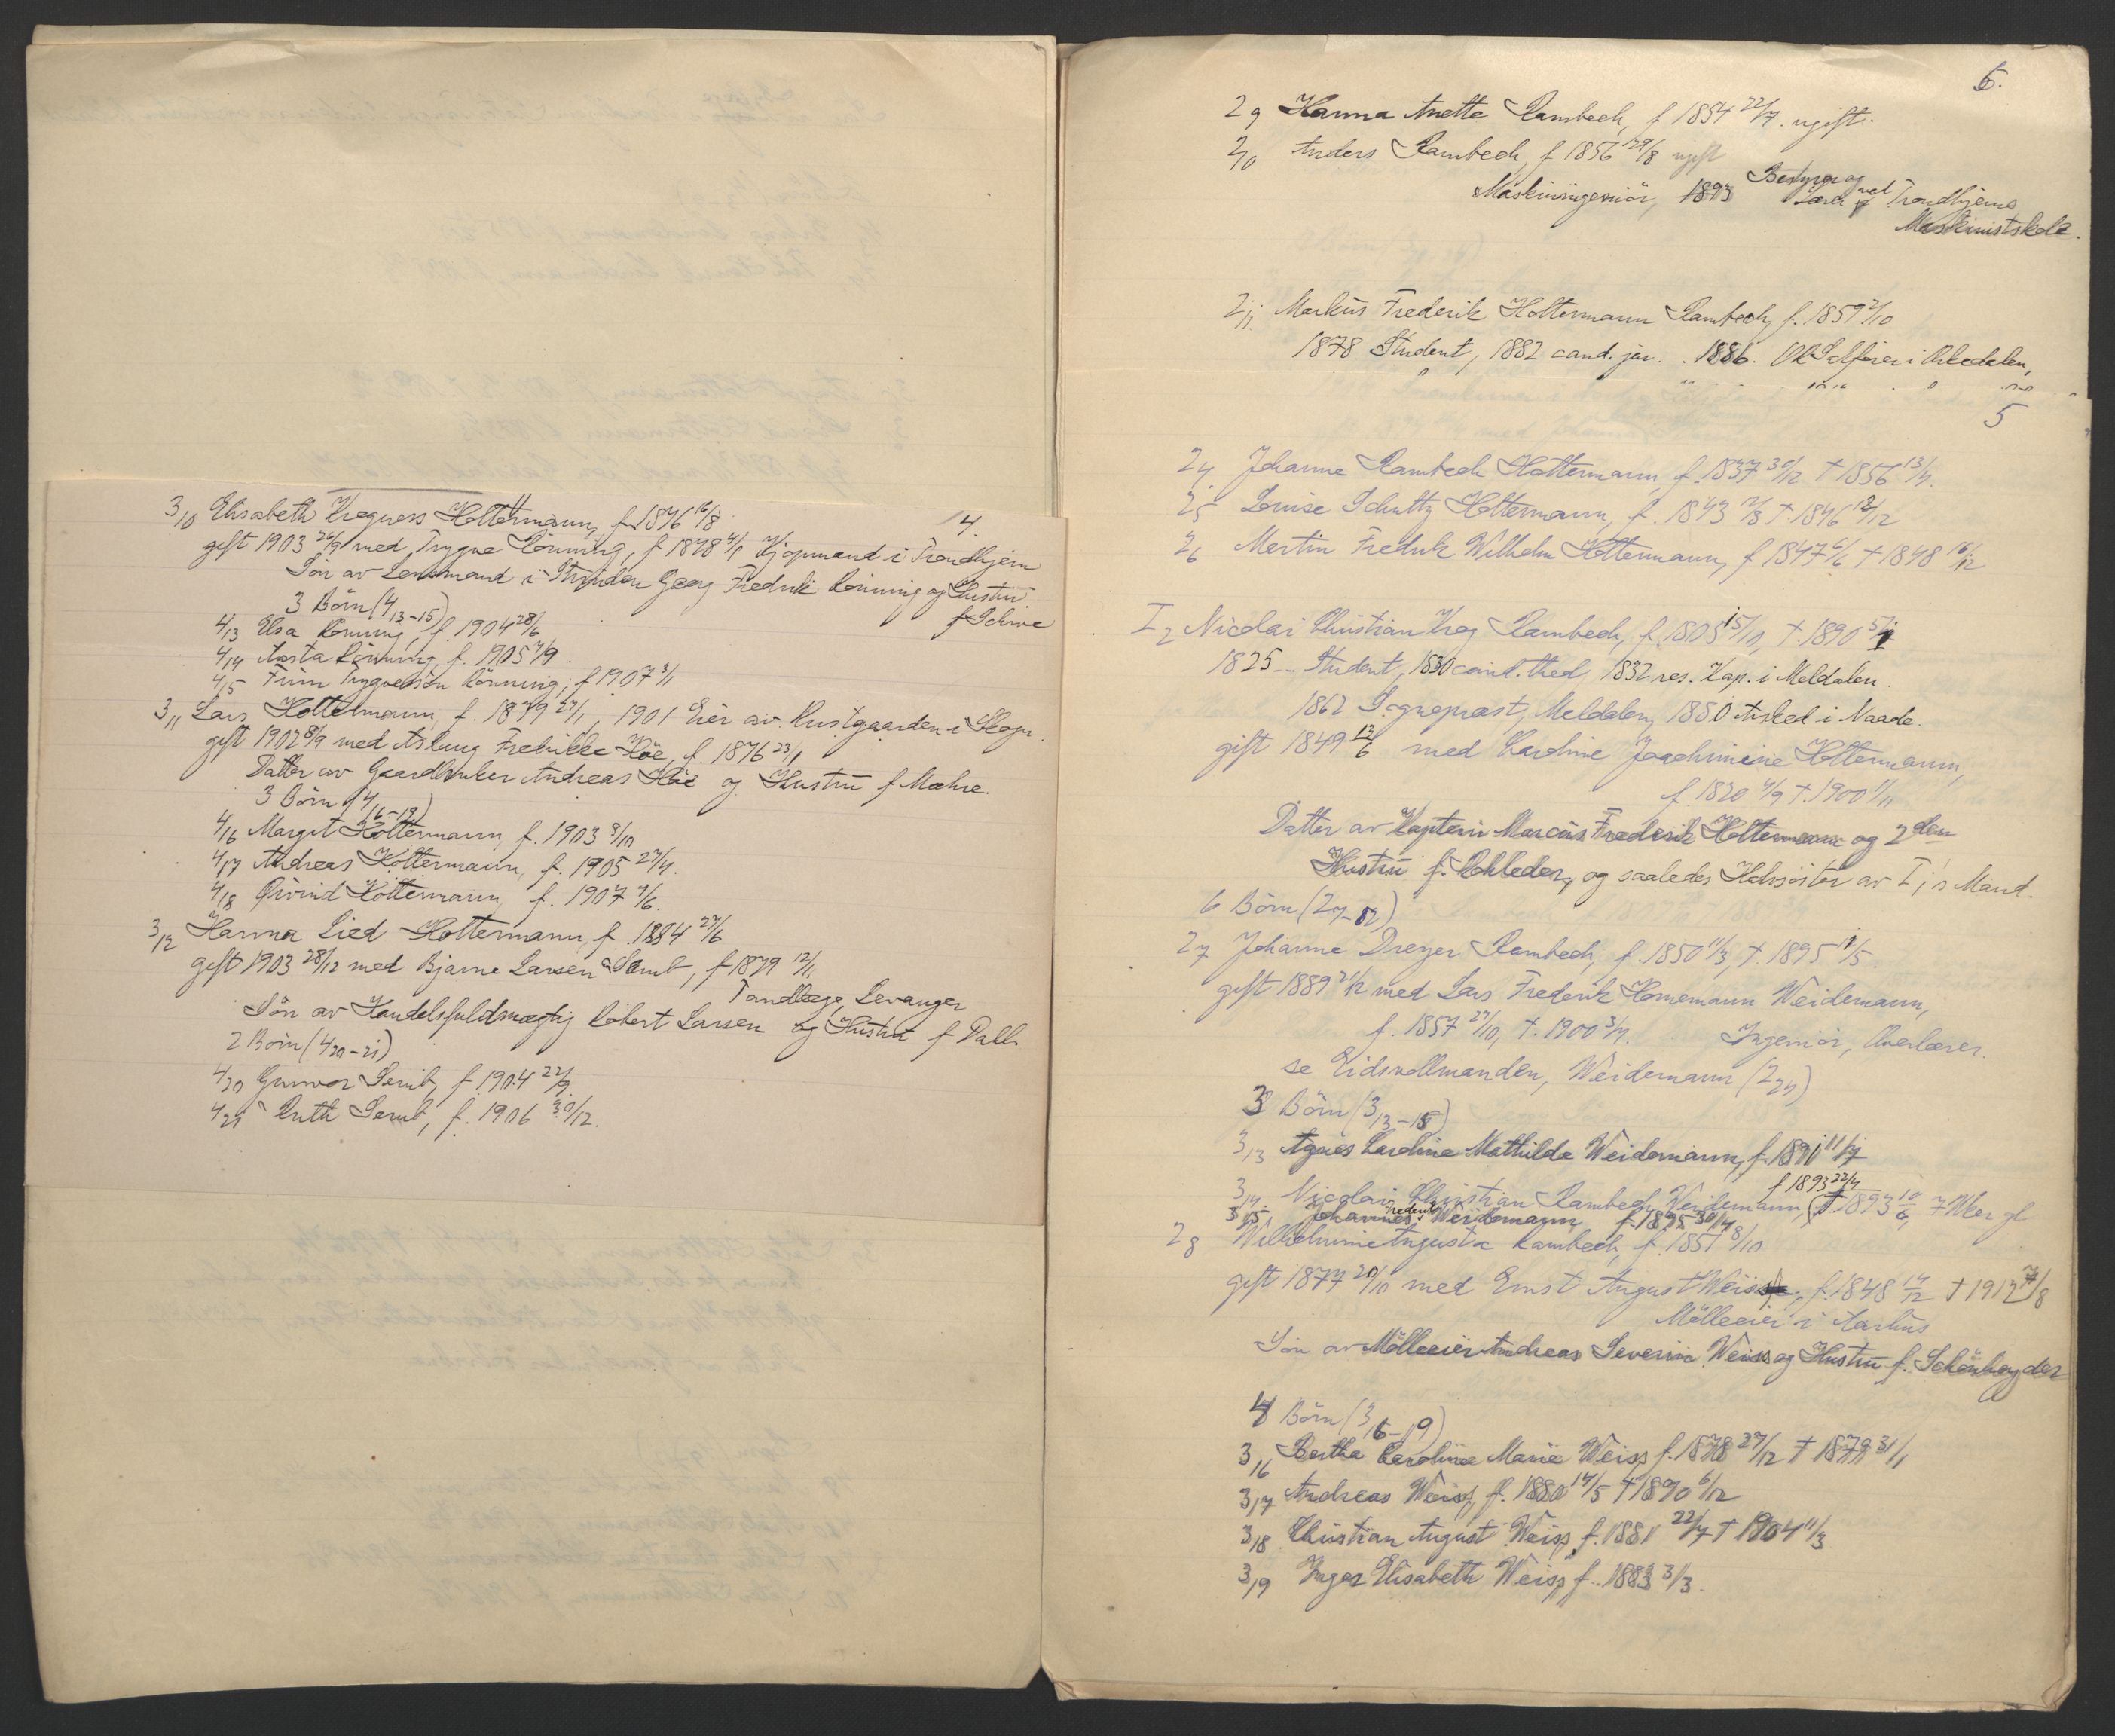 4.
3/10 Elisabeth Krogness Holtermann, f. 1876 16/8
gift 1903 26/9 med Trygve Rönning, f. 1878 4/1 Kjöpmand i Trondhjem
Sön av Lensmand i Strinden Georg Fredrik Rönning og Hustru
f. Schive
3 Börn (4/13-15)
4/13 Elsa Rönning, f. 1904 28/6
4/14 Aasta Rönning, f. 1905 7/9
4/15 Finn Trygvesön Rönning, f. 1907 3/1
3/11 Lars Holtermann, f. 1879 27/1, 1901 Eier av Rustgaarden i Skogn.
gift 1902 8/9 med Aslaug Fredrikke Höe, f. 1876 23/1
Datter av Gaardbruker Andreas Höe og Hustru f. Mæhre.
3 Börn (4/16-19)
4/16 Margit Holtermann, f. 1903 9/10
4/17 Andreas Holtermann, f. 1905 27/4.
4/18 Öivind Holtermann, f. 1907 7/6.
3/12 Hanna Lied Holtermann, f. 1884 27/6
gift 1903 28/12 med Bjarne Larsen Semb, f. 1879 12/11
Tandlæge, Levanger
Sön av Handelsfuldmægtig Robert Larsen og Hustru f. Dahl.
2 Börn (4/20-21)
4/20 Gunvor Semb, f. 1904 22/9.
4/21 Ruth Semb, f. 1906 30/12.
6.
2/9 Hanna Anette Rambech, f. 1854 22/7. ugift.
2/10 Anders Rambech, f. 1856 29/8 ugift
Maskiningeniör, 1893 Bestyrer og Lærer ved Trondhjems
Maskinistskole.
2/11 Markus Frederik Holtermann Rambech, f. 1859 2/10
1878 Student, 1882 cand. jur. . 1886. OR Sagförer i Orkedalen,
5
2/4 Johanne Rambech Holtermann, f. 1837 30/12 † 1856 13/4.
2/5 Louise Schultz Holtermann, f. 1843 12/8 † 1846 12/12
2/6 Martin Fredrik Wilhelm Holtermann, f. 1847 6/6 † 1848 16/12
I2 Nicolai Christian Krog Rambech, f. 1805 15/10, †. 1890 5/1
1825 Student, 1830 cand. theol 1832 res. Kap. i Meldalen.
1862 Sogneprest, Meldalen, 1880 Avsked i Naade.
gift 1849 13/6 med Karoline Joachimine Holtermann,
f. 1820 4/9 †. 1900 1/11
Datter av Kaptein Marcus Frederik Holtermann og 2den
Hustru f. Rohleder, og saaledes Halvsöster av I1's Mand.
6 Börn (2/7-12)
2/7 Johanne Dreyer Rambech, f. 1850 11/3, †. 1895 11/5.
gift 1889 21/12 med Lars Frederik Hornemann Weidemann,
f. 1857 27/10, †. 1900 3/7. Ingeniör, Overlærer.
se Eidsvollmanden, Weidemann (2/24)
3 Börn (3/13-15)
3/13 Agnes Caroline Mathilde Weidemann, f. 1891 11/7
3/14. Nicolai Christian Rambech Weidemann, f 1893 22/4 (†. 1893 10/6, 7 Uker gl
3/15 Johannes Fredrik Weidemann f. 1895 30/4
2/8 Wilhelmine Augusta Rambech, f. 1851 8/10
gift 1877 20/10 med Ernst August Weiss, f. 1848 14/12 † 1917 7/8
Mölleeier i Aarhus
Sön av Mölleeier Andreas Severin Weiss og Hustru f. Schönheyder
4 Börn (3/16-19)
3/16 Bertha Caroline Marie Weiss f. 1878 27/12 † 1879 31/1
3/17 Andreas Weiss, f. 1880 14/5 † 1890 6/12
3/18 Christian August Weiss, f. 1881 22/7 † 1904 11/3
3/19 Inger Elisabeth Weiss, f. 1883 3/3.